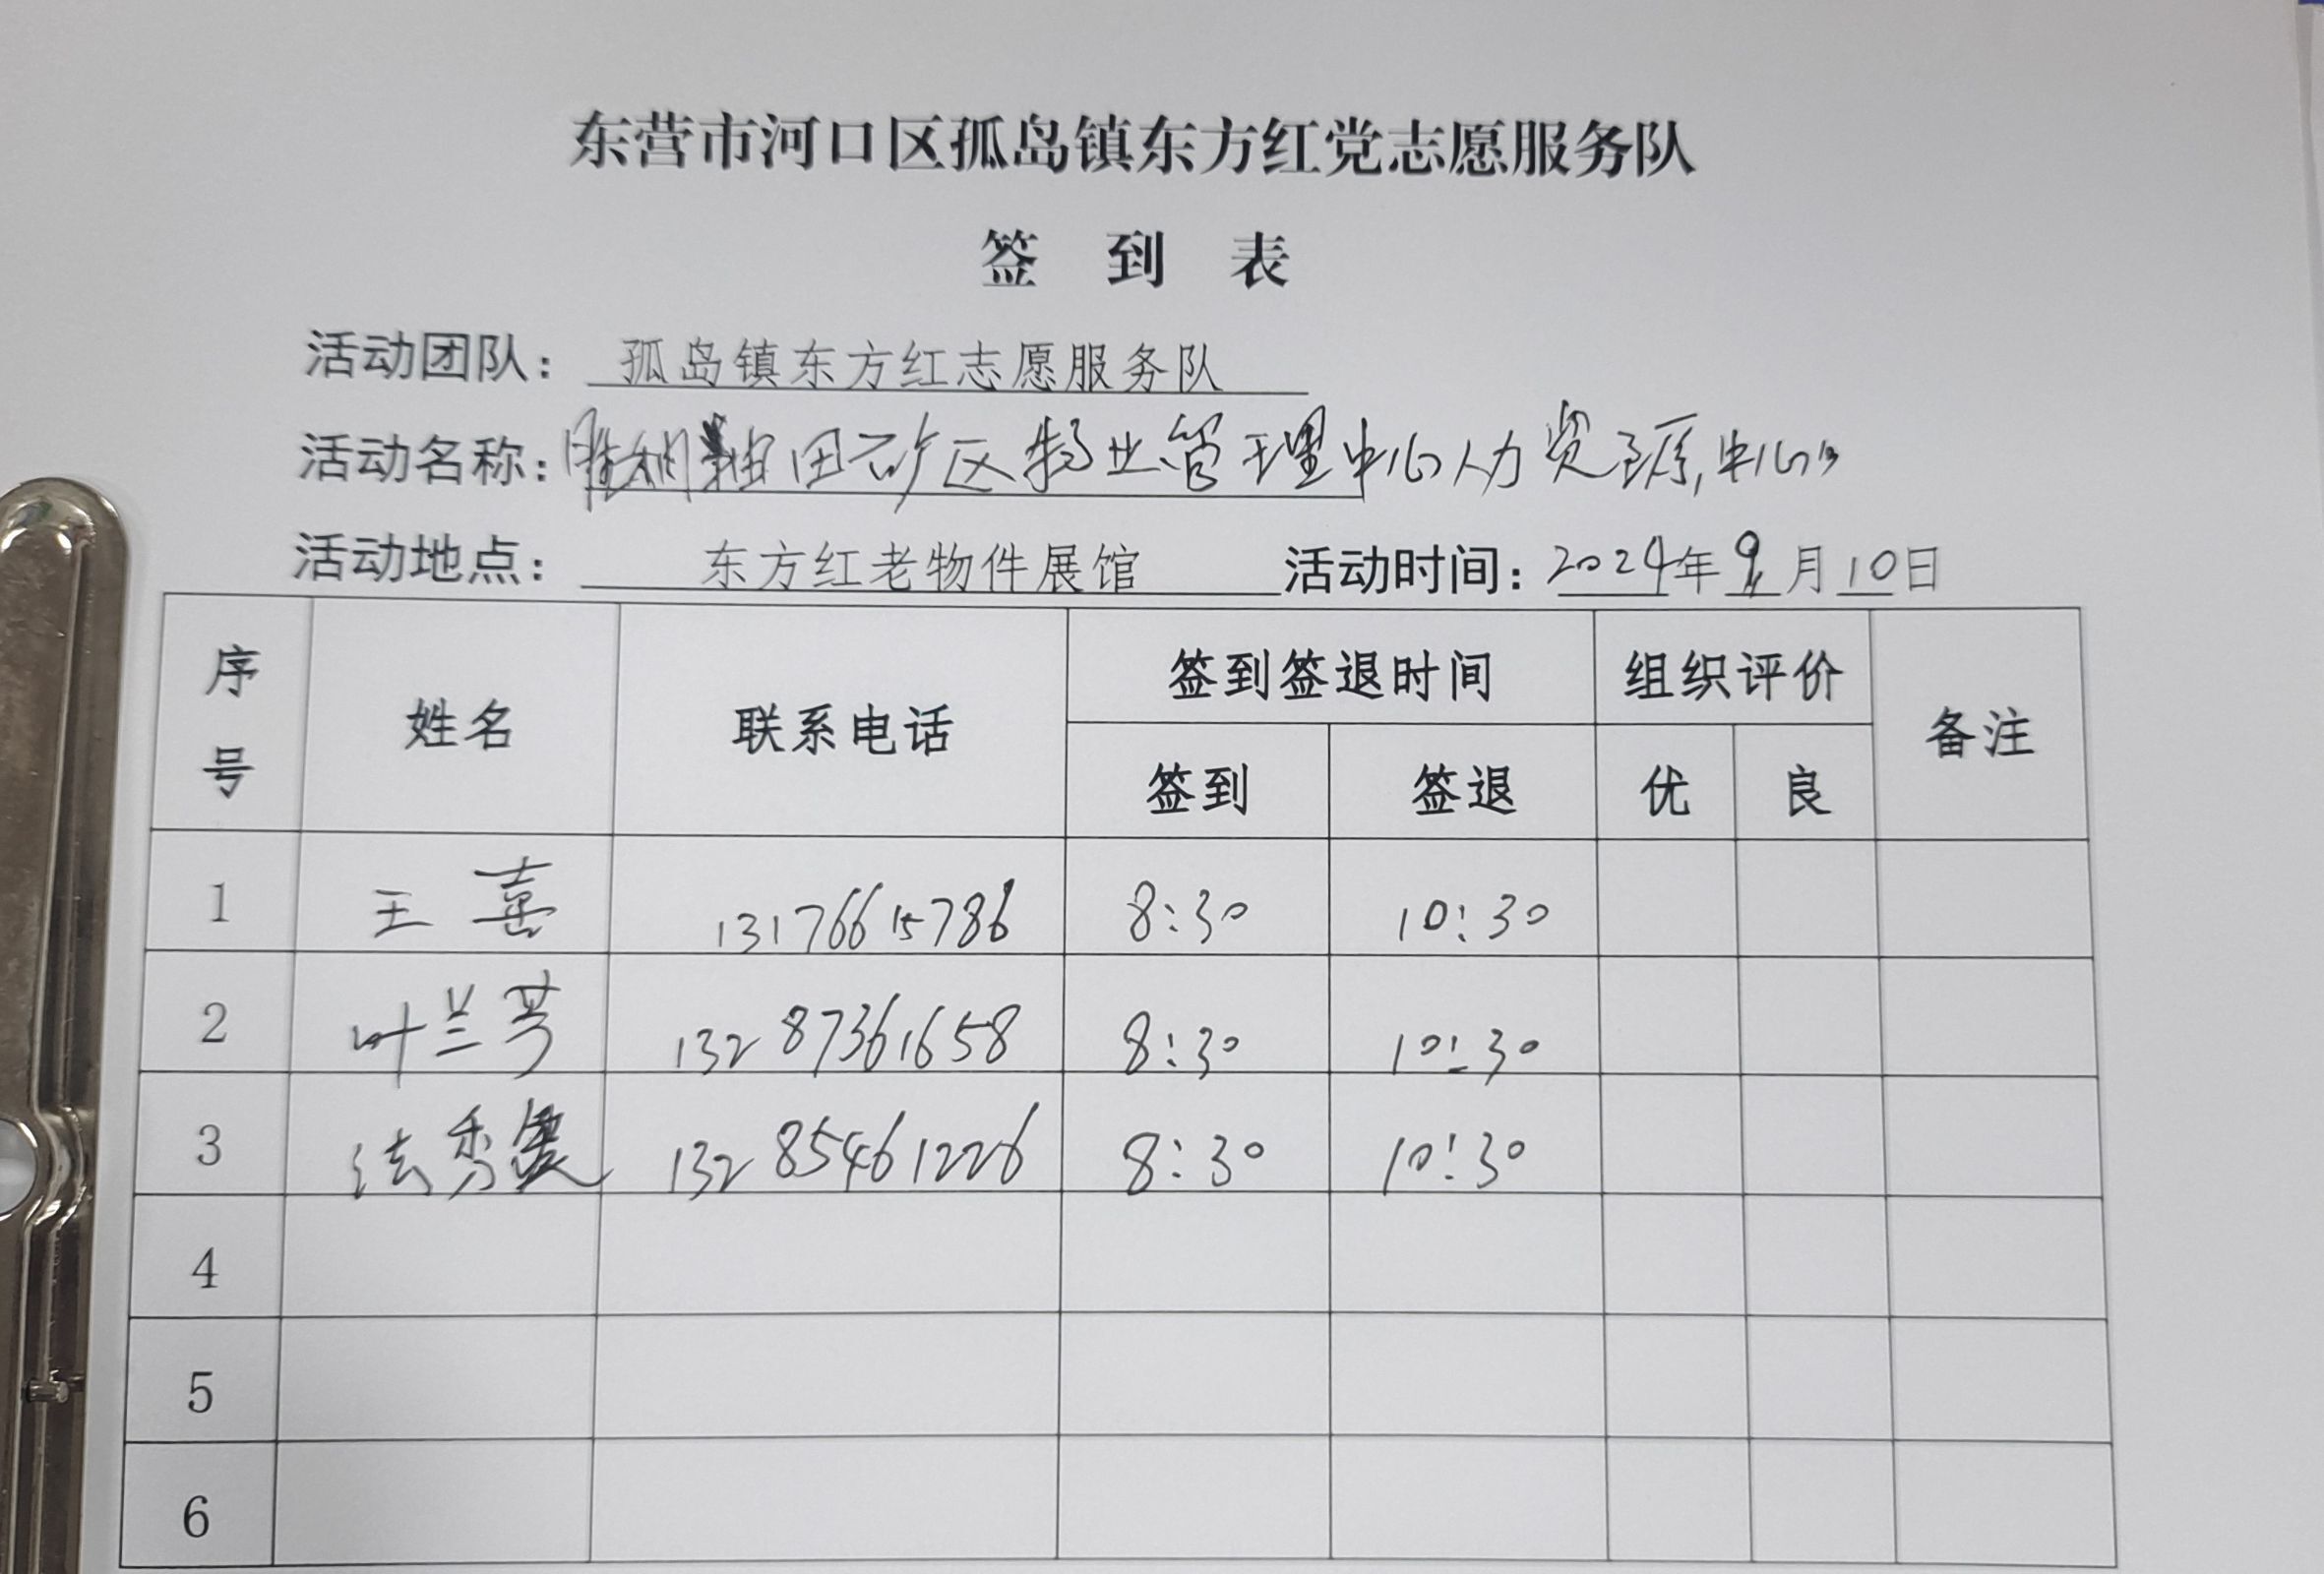 东营市河口区孤岛镇东方红党志愿服务队
签 到 表
活动团队： 孤岛镇东方红志愿服务队
活动名称：胜利油田矿区物业管理中心人力资源中心
活动地点： 东方红老物件展馆 活动时间：2024年9月10日
序号 姓名 联系电话 签到签退时间 组织评价 备注
签到 签退 优 良
1 王喜 13176615786 8:30 10:30
2 叶兰芳 13287361658 8:30 10:30
3 秀 13285461226 8:30 10:30
4
5
6